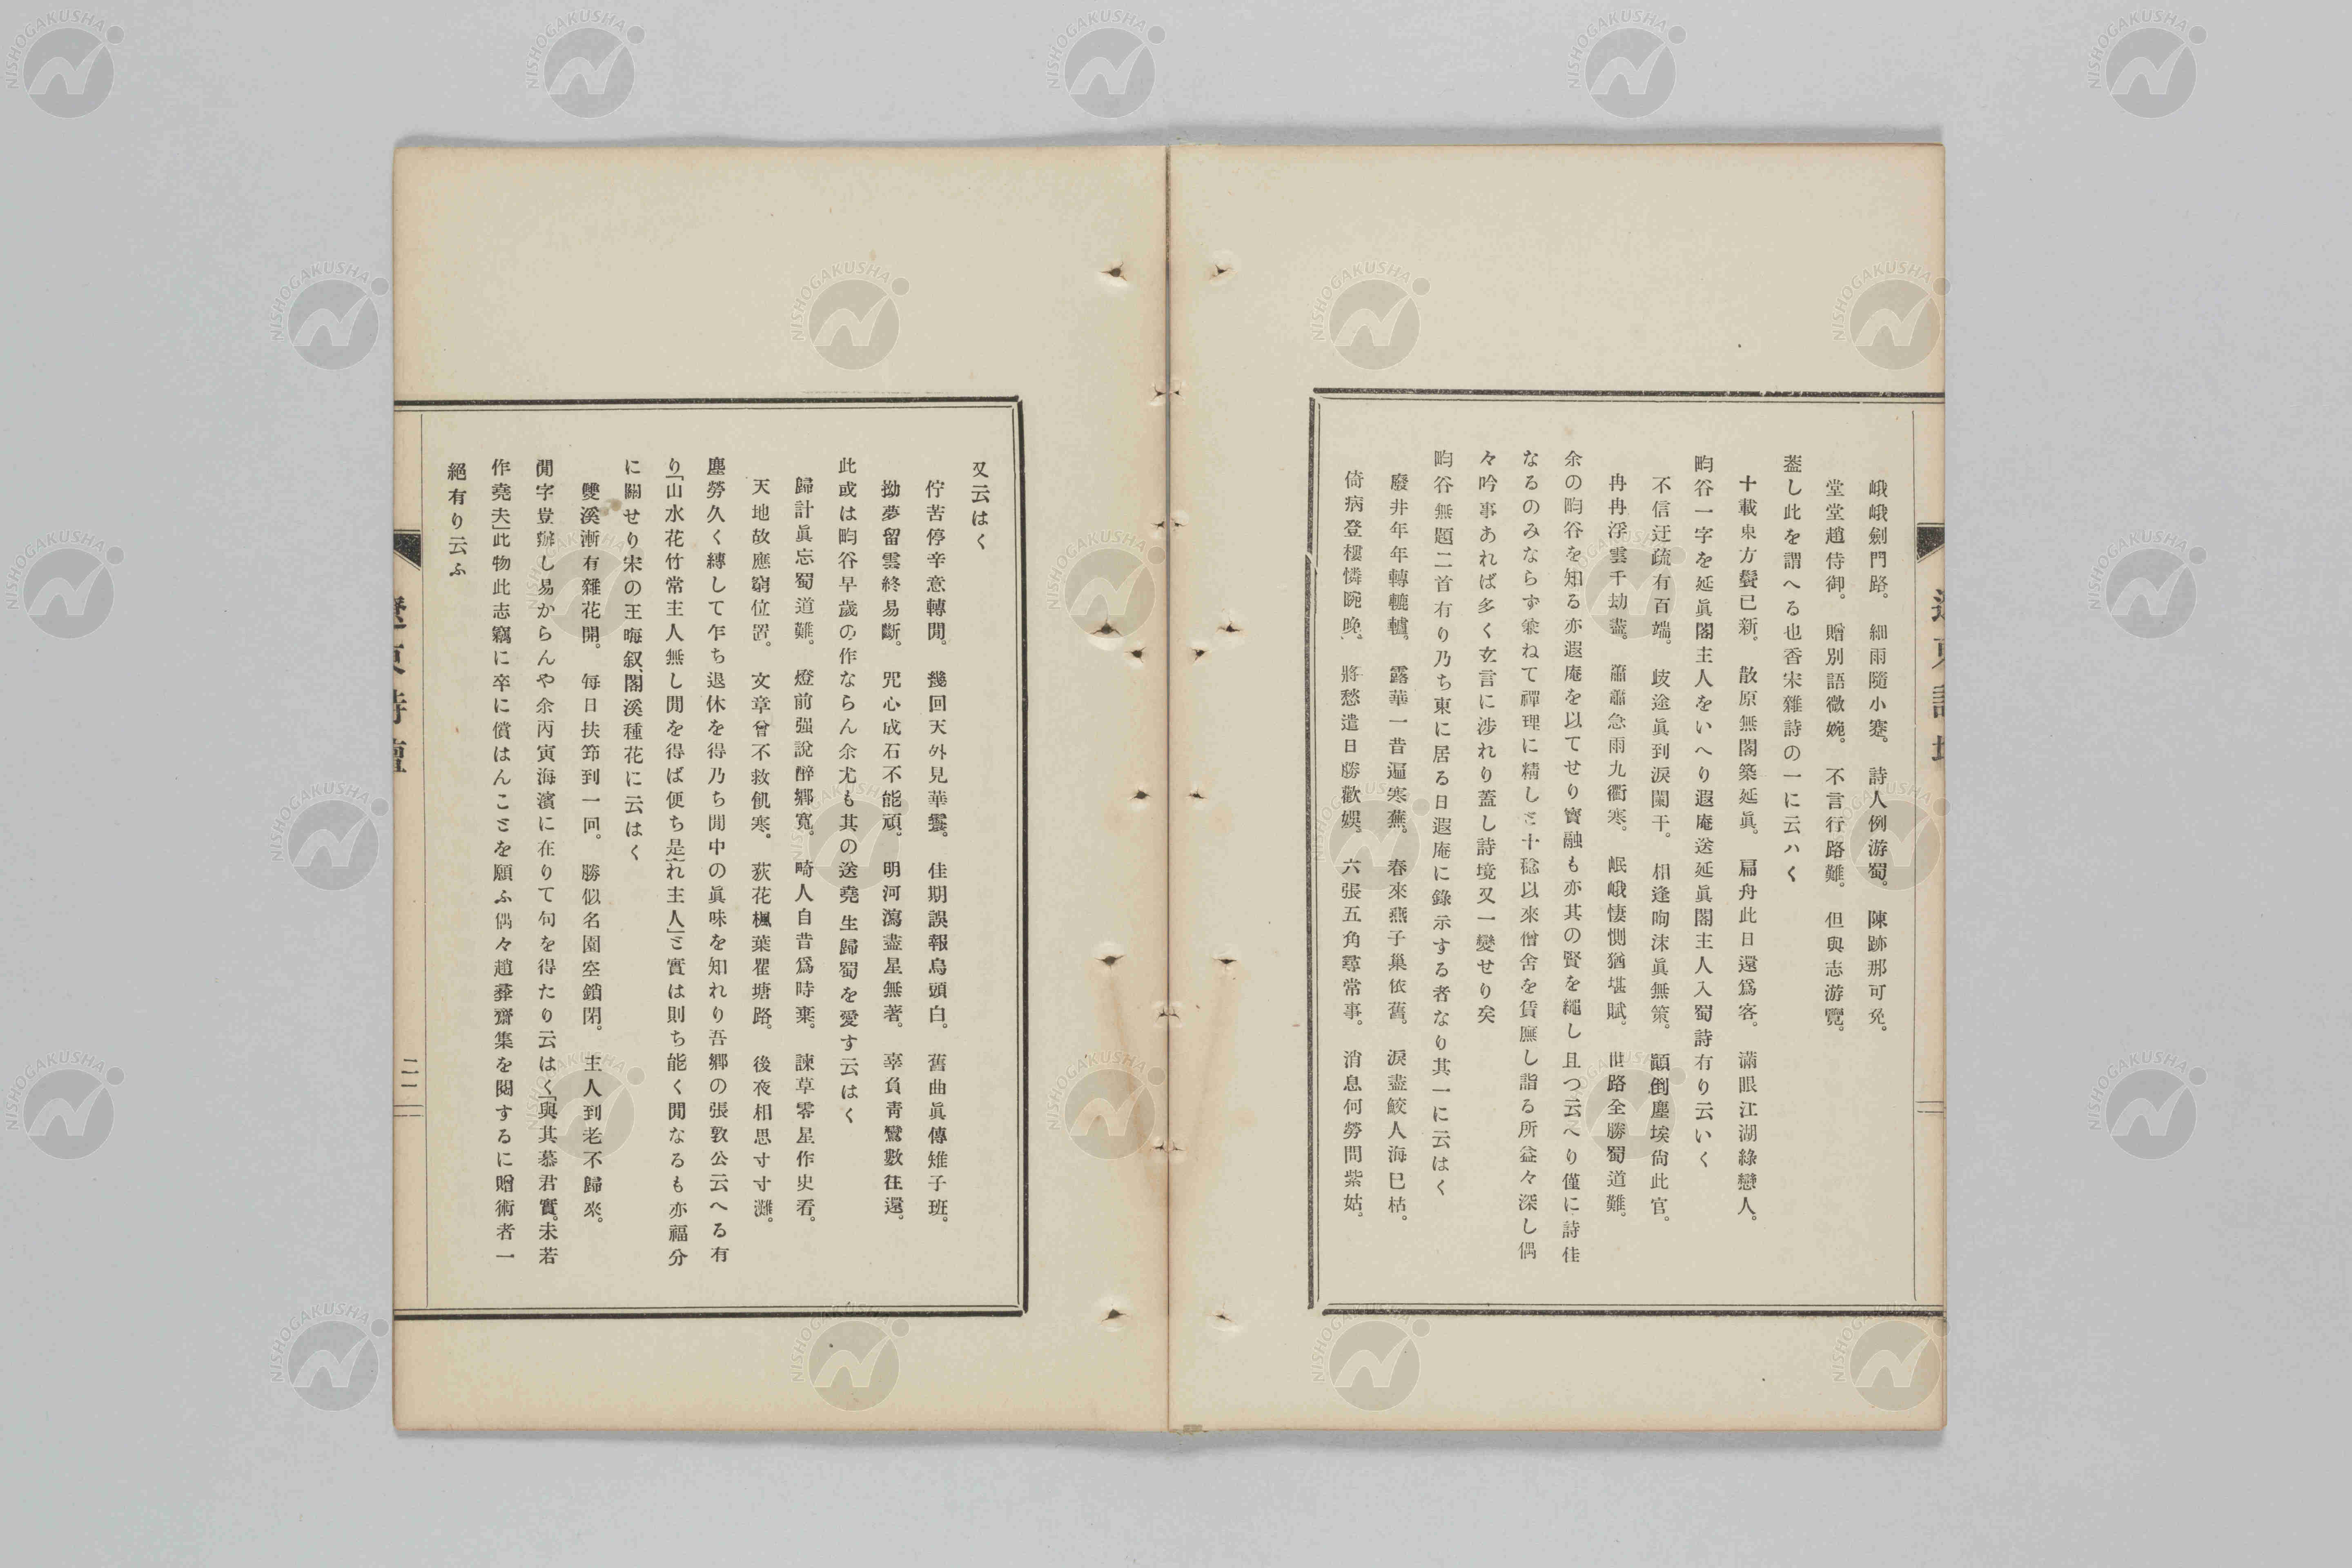 峨峨劍門路。細雨隨小蹇。詩人例游蜀。陳跡那可免。
堂堂趙侍御。贈別語微婉。不言行路難。但與志游覽。
葢し此を謂へる也香宋雜詩の一に云ハく
十載東方鬓已新。散原無閣築延眞。扁舟此日還爲客。滿眼江湖綠戀人。
畇谷一字を延眞閣主人をいへり遐庵送延眞閣主人入蜀詩有り云いく
不信迂疏有百端。歧途眞到淚闌干。相逢呴沫眞無策。顚倒塵埃尙此官。
冉冉浮雲千劫盡。蕭蕭急雨九衢寒。岷峨悽惻猶堪賦。世路全勝蜀道難。
余の畇谷を知る亦遐庵を以てせり實融も亦其の賢を繩し且つ云へり僅に詩佳
なるのみならず兼ねて禪理に精しさ十稔以來僧舍を賃廡し詣る所益々深し偶
々吟事あれば多く玄言に涉れり蓋し詩境又一變せり矣
畇谷無題二首有り乃ち東に居る日遐庵に錄示する者なり其一に云はく
廢井年年轉轆轤。露華一昔遍寒蕪。春來燕子巢依舊。淚盡鮫人海已枯。
倚病登樓憐晼晚。將愁遣日勝歡娛。六張五角尋常事。消息何勞問紫姑。
又云はく
佇苦停辛意轉閒。幾回天外見華鬘。佳期誤報烏頭白。舊曲眞傳雉子班。
拗夢留雲終易斷。咒心成石不能頑。明河瀉盡星無著。辜負靑鸞數往還。
此或は畇谷早歲の作ならん余尤も其の送堯生歸蜀を愛す云はく
歸計眞忘蜀道難。燈前强說醉鄉寬。畸人自昔爲時棄。諫草零星作史看。
天地故應窮位置。文章曾不救飢寒。荻花楓葉瞿塘路。後夜相思寸寸灘。
塵勞久く縛して乍ち退休を得乃ち閒中の眞味を知れり吾鄉の張敦公云へる有
り「山水花竹常主人無し閒を得ば便ち是れ主人」さ實は則ち能く閒なるも亦福分
に關せり宋の王晦叙、閣溪種花に云はく
雙溪漸有雜花開。每日扶筇到一回。勝似名園空鎖閉。主人到老不歸來。
閒字豈辦し易からんや余丙寅海濱に在りて句を得たり云はく「與其慕君實。未若
作堯夫」此物此志竊に卒に償はんこさを願ふ偶々趙葊齋集を閱するに贈術者一
絕有り云ふ
二一